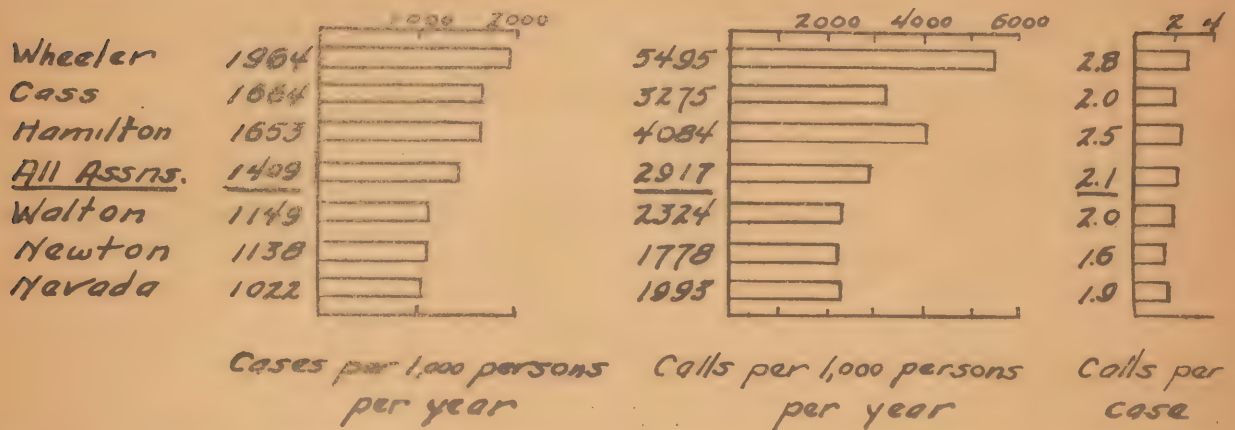 1000 2000 2000 4000 6000 2 4
Wheeler 1964 5495 2.8
Cass 1664 3275 2.0
Hamilton 1653 4084 2.5
All Assns. 1409 2917 2.1
Walton 1149 2324 2.0
Newton 1138 1778 1.6
Nevada 1022 1993 1.9
Cases per 1,000 persons Calls per 1,000 persons Calls per
per year per year case